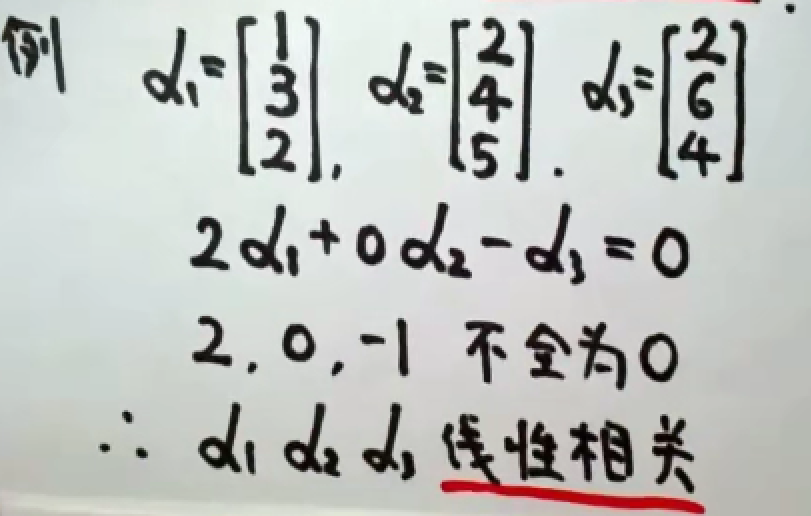 例 α₁=[1 3 2], α₂=[2 4 5]. α₃=[2 6 4]
2α₁+0α₂-α₃=0
2,0,-1 不全为0
∴ α₁ α₂ α₃ 线性相关